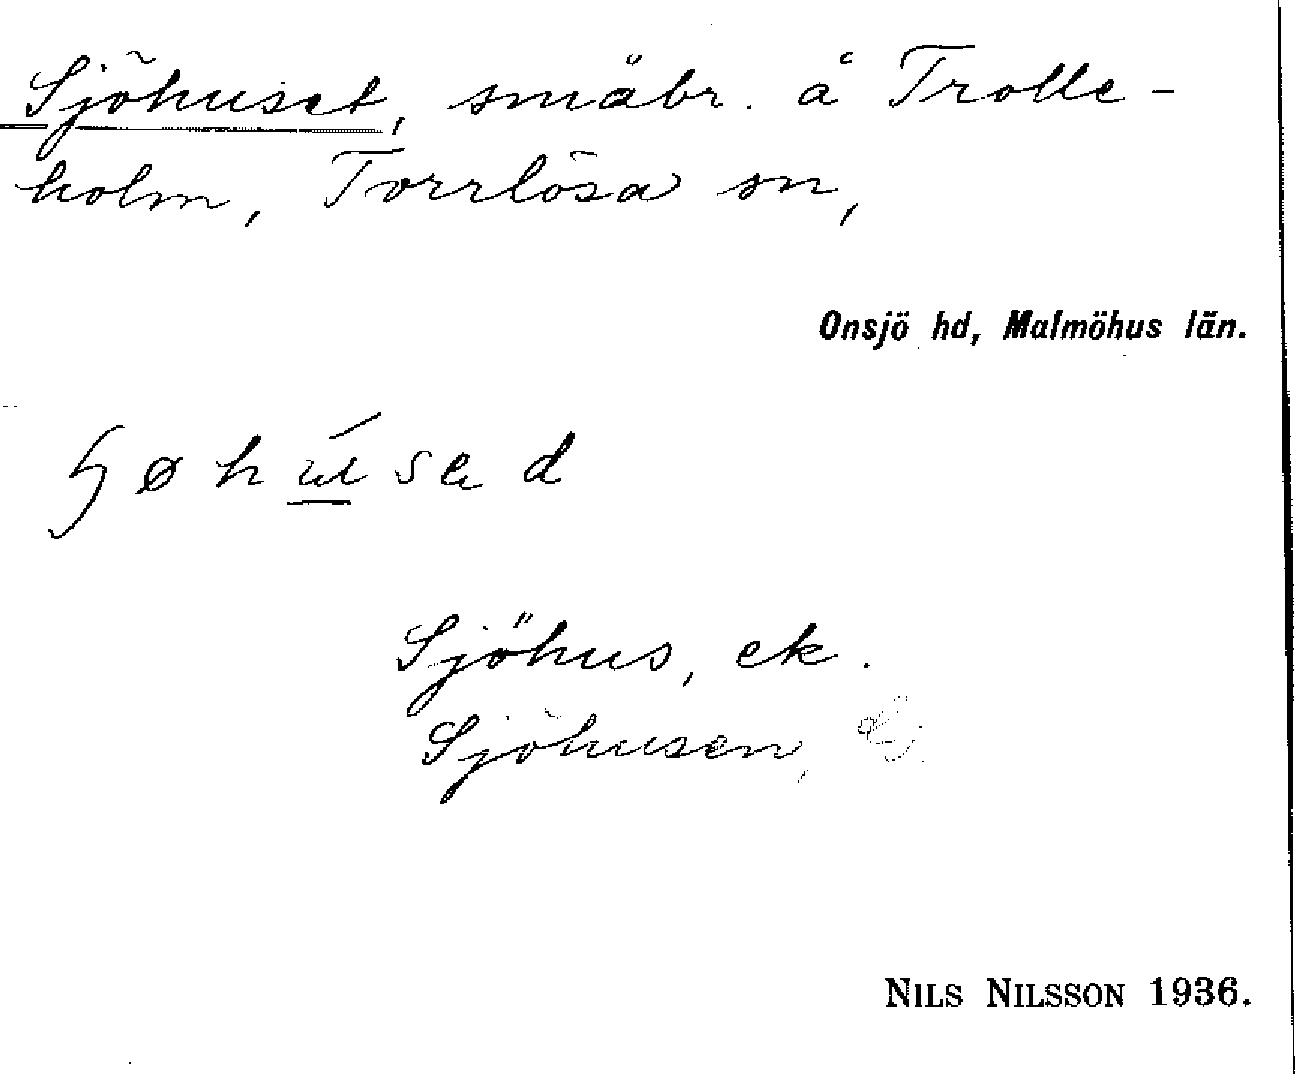 Sjöhuset, småbr. å Trolle-
holm, Torrlösa sn,
Onsjö hd, Malmöhus län.
Sjöhus, ek.
Sjöhusen,
NILS NILSSON 1936.